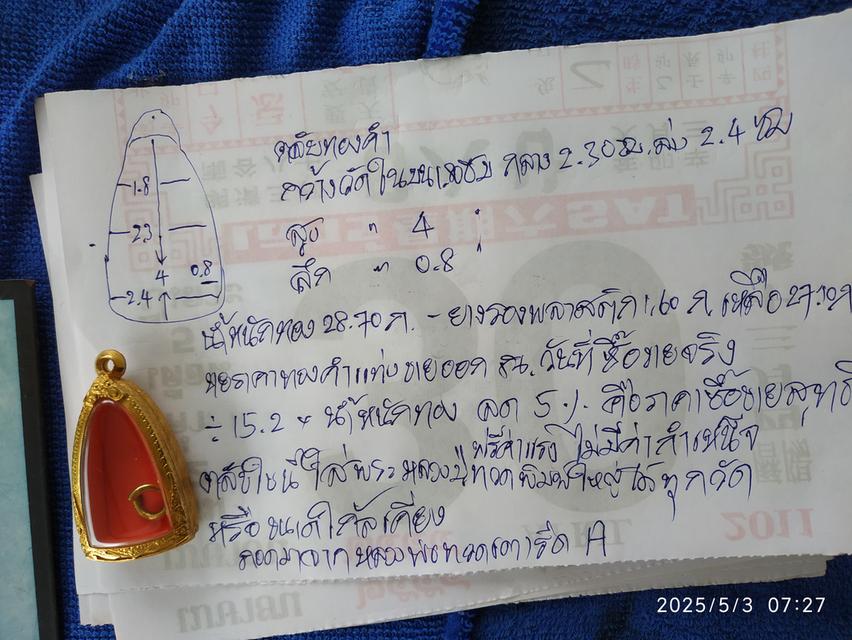 ตลับทองคำ
กว้างวัดในบน 1.8 ซม กลาง 2.30 ซม. ล่าง 2.4 ซม
สูง " 4 "
ลึก " 0.8 "
1.8
2.3
4 0.8
2.4
น้ำหนักทอง 28.70 ก. - ยางรองพลาสติก 1.60 ก. เหลือ 27.10 ก
ราคาทองคำแท่งขายออก วันที่ซื้อขายจริง
÷ 15.2 × น้ำหนักทอง ลด 5 % คือราคาซื้อขายสุทธิ
ฟรีค่าแรง ไม่มีค่ากำเหน็จ
ตลับใบนี้ใส่พระหลวงปู่ทวดพิมพ์ใหญ่ได้ทุกวัด
หรือขนาดใกล้เคียง
ถอดมาจากหลวงพ่อทวดเตารีด A
2011
2025/5/3 07:27